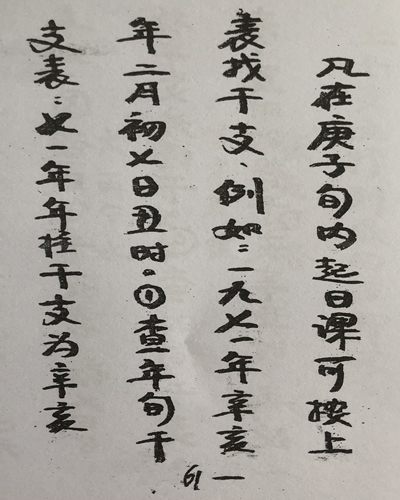 凡在庚子旬内起日课可按上
表找干支、例如：一九七一年辛亥
年二月初七日丑时。①查年旬干
支表：七一年年柱干支为辛亥
61一